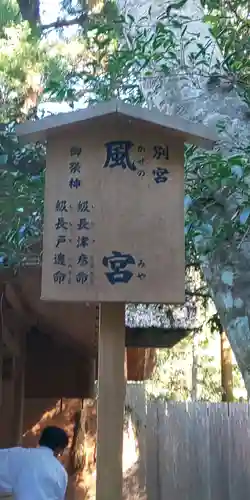 別宮
風宮
かぜの
みや
御祭神
級長津彦命
級長戸邊命